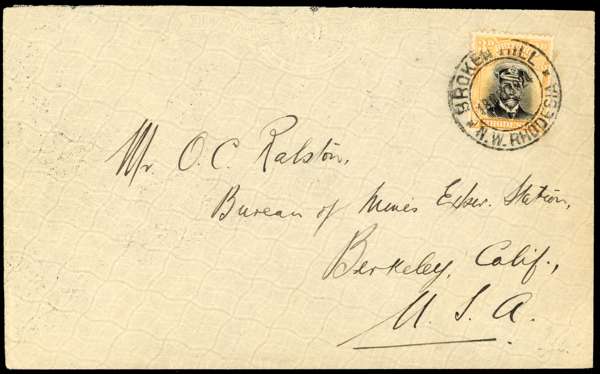 BROKEN HILL
N.W. RHODESIA
Mr. O. C. Ralston,
Bureau of Mines Exper. Station,
Berkeley, Calif.,
U. S. A.